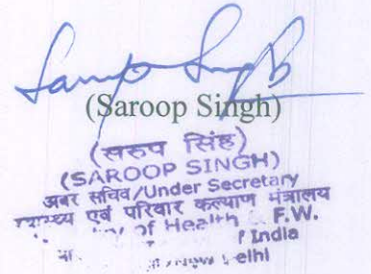 Saroop Singh
(Saroop Singh)
(सरुप सिंह)
(SAROOP SINGH)
अवर सचिव/Under Secretary
स्वास्थ्य एवं परिवार कल्याण मंत्रालय
of Health F.W.
India
New elhi